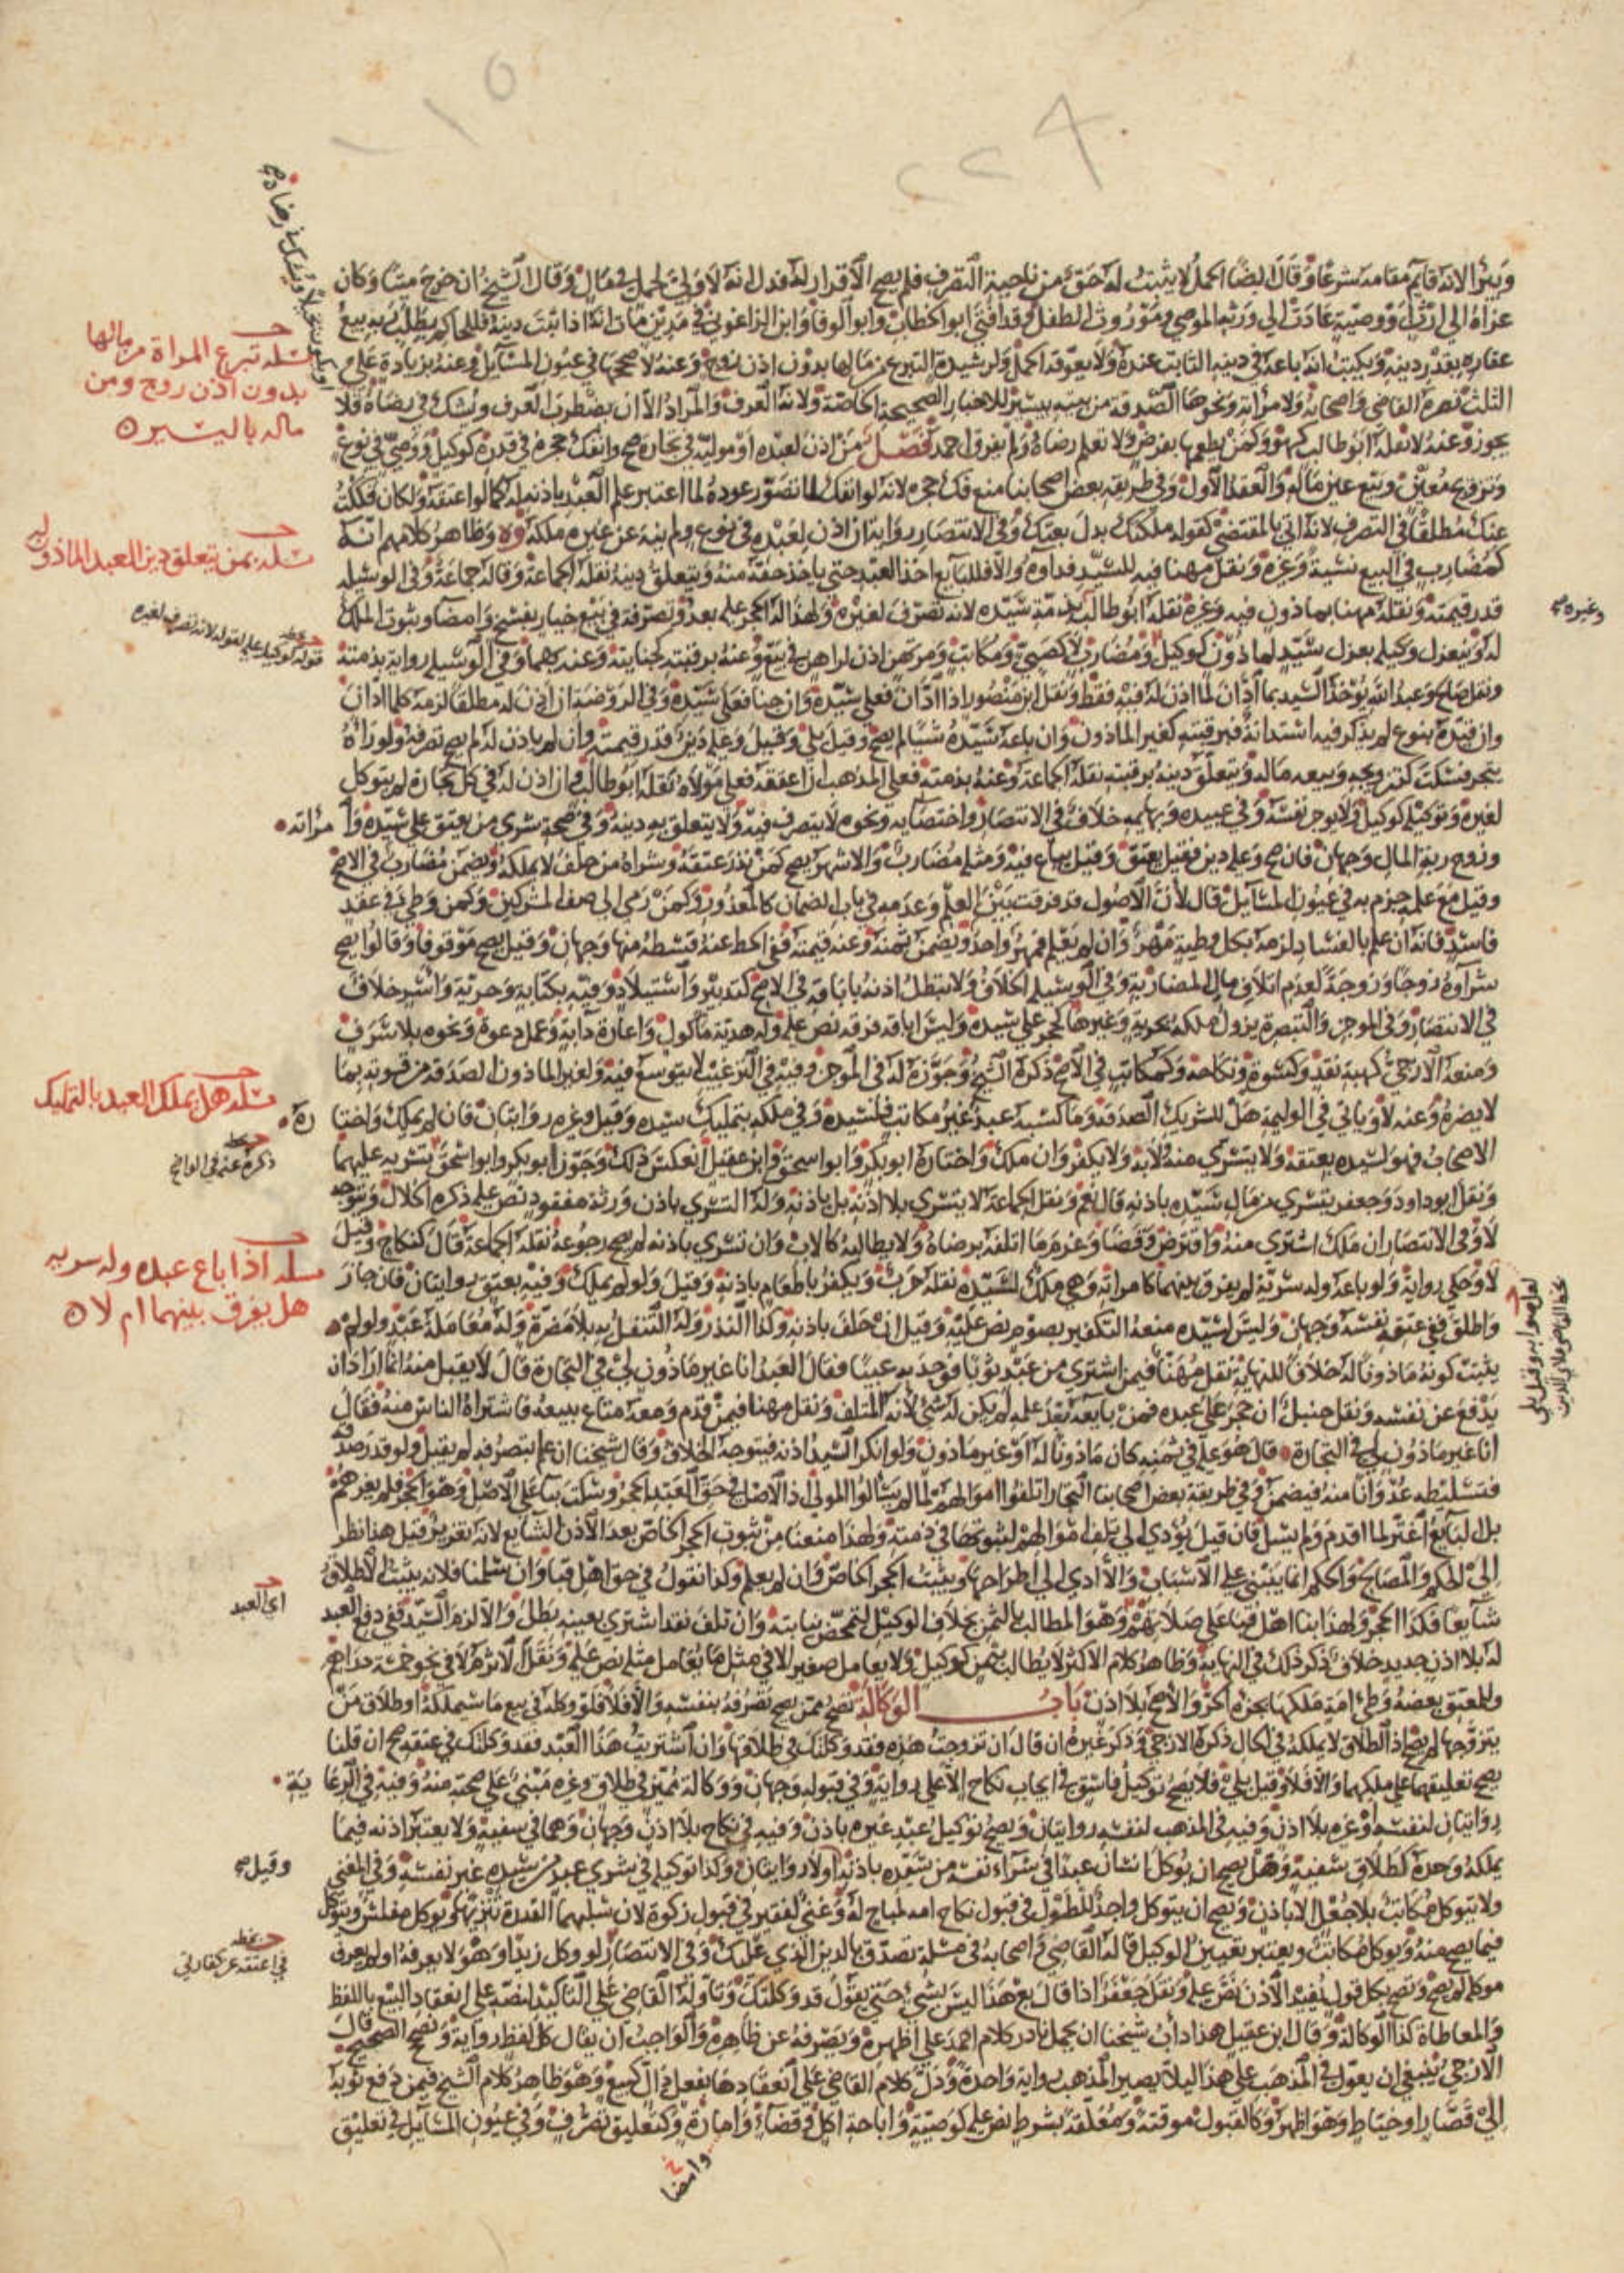 وليًّا الا انه قايم مقامه شرعا وقال ايضا الحمل لا يثبت له حق من ناحية التصرف فلم يصح الاقرار له فدل انه لا ولي لحمل في مال وقال الشيخ ان خرج ميتا وكان
عزاه الى ارث او وصية عادت الى ورثه الموصي وموروث الطفل وقد افتى ابو الخطاب وابو الوفا وابن الزاغوني في مدين مات انه اذا ثبت دينه فللحاكم بطلب ربه بيع
عقاره بقدر دينه ويكتب انه باعه في دينه الثابت عنده ولا يعوقه الحمل ولرشيدة التبرع من مالها بدون اذن زوج وعنه لا صححها في عيون المسايل وعنه بزيادة على
الثلث نصره القاضي واصحابه ولامرأته ونحوها الصدقة من بيته بيسير للاخبار الصحيحة الخاصة ولانه العرف والمراد الا ان يضطرب العرف ويشك في رضاه فلا
يجوز وعنه لا نقله ابو طالب كهو وكمن يطعمها بفرض ولا تعلم رضاه ولم يفرق احمد فصل من اذن لعبده او موليه في تجارة صح وانفك حجره في قدره كوكيل ووصي في نوع
وتزويج معين وبيع عين ماله والعقد الاول وفي طريقة بعض اصحابنا منع فك حجره لانه لو انفك لما تصور عوده لما اعتبر علم العبد باذنه له كما لو اعتقه ولكان فككت
عنك مطلقا في التصرف لانه اتي بالمقتضى كقوله ملكتك بدل بعتك وفي الانتصار رواية ان اذن لعبده في نوع ولم ينه عن غيره ملكه وظاهر كلامهم انه
كمضارب في البيع نسية وغيره ونقل مهنا فيه للسيد فداوه والا فللبايع اخذ العبد حتى ياخذ حقه منه ويتعلق دينه نقله الجماعة وقاله جماعة وفي الوسيلة
قدر قيمته ونقله مهنا بماذون فيه وغيره نقله ابو طالب بذمة سيده لانه تصرف لغيره ولهذا له الحجر عليه بعد وتصرفه في بيع خيار بفسخ وامضا وثبوت الملك
له وينعزل وكيله بعزل سيد لماذون كوكيل ومضارب لا كصبي ومكاتب ومرتهن اذن لراهن في بيع وعنه برقبته كجنايته وعنه بهما وفي الوسيلة رواية بذمته
ونقل صالح وعبد الله يؤخذ السيد بما ادان لما اذن له فيه فقط ونقل ابن منصور اذا ادان فعلى سيده وان جنا فعلى سيده وفي الروضة ان اذن له مطلقا لزمه كلما ادان
وان قيده بنوع لم يذكر فيه استدانة فبرقبته كغير الماذون وان باعه سيده شيا لم يصح وقيل بلى وقيل وعليه دين قدر قيمته وان لم ياذن له لم يصح تصرفه ولو راه
يتجر فسكت كتزويجه وبيعه ماله ويتعلق دينه برقبته نقله الجماعة وعنه بذمته فعلى المذهب ان اعتقه فعلى مولاه نقله ابو طالب وان اذن له في كل تجارة لم يتوكل
لغيره وتوكيله كوكيل ولا يوجر نفسه وفي عبيده وبهايمه خلاف في الانتصار واحتصابه ونحوه لا يتصرف فيه ولا يتعلق به دينه وفي صحة شرى من يعتق على سيده وامرأته
وزوج ربة المال وجهان فان صح وعليه دين فقيل يعتق وقيل يباع فيه ومثله مضارب والاشهر يصح كمن نذر عتقه وشراه من حلف لا يملكه ويضمن مضارب في الاصح
وقيل مع علمه جزم به في عيون المسايل قال لان الاصول قد فرقت بين العلم وعدمه في باب الضمان كالمعذور وكمن رمى الى صف المشركين وكمن وطى في عقد
فاسد فانه ان علم بالفساد لزمه بكل وطية مهر وان لم يعلم فمهر واحد ويضمن ثمنه وعنه قيمته ففي الحط عنه قسطه منها وجهان وقيل يصح موقوفا وقالوا يصح
شراوه زوجا وزوجة لعدم اتلاف مال المضاربة وفي الوسيلة الخلاف ولا يبطل اذنه باباقه في الاصح كتدبير واستيلاد وفيه بكتابة وحرية واسر خلاف
في الانتصار وفي الموجز والتبصرة يزول ملكه بحرية وغيرها كحجر على سيده وليس اباقه فرقة نص عليه وله هدية ماكول واعارة دابة وعمل دعوة ونحوه بلا سرف
ومنعه الازجي كهبة نقد وكسوة ونكاحه وكمكاتب في الاصح ذكره الشيخ وجوزه له في الموجز وفيه في الترغيب لا يتوسع فيه ولغير الماذون الصدقة من قوته بما
لا يضره وعنه لا وياتي في الوليمة هل للشريك الصدقة وما كسبه عبد غير مكاتب فلسيده وفي ملكه بتمليك سيده وقيل وغيره روايتان فان لم يملك واختاره
الاصحاب فهو لسيده يعتقه ولا يتسرى منه لانه ولا يكفر وان ملك واختاره ابو بكر وابو اسحق وابن عقيل انعكس ذلك وجوز ابو بكر وابو اسحق تسريه عليهما
ونقل ابو داود وجعفر يتسرى من مال سيده باذنه قال نعم ونقل الجماعة لا يتسرى بلا اذنه بل باذنه وله التسري باذن ورثة مفقود نص عليه ذكره الخلال ويتوجه
لا وفي الانتصار ان ملك اشترى منه واقترض وقضا وغرم ما اتلفه برضاه ولا يطالبه كالاب وان تسرى باذنه لم يصح رجوعه نقله الجماعة قال كنكاح وقيل
لا وحكي رواية ولو باعه وله سرية لم يفرق بينهما كامراته وهي ملك لسيده نقله حرب ويكفر باطعام باذنه وقيل ولو لم يملك وفيه بعتق روايتان فان جاز
واطلق ففي عتقه نفسه وجهان وليس لسيده منعه التكفير بصوم نص عليه وقيل ان حلف باذنه وكذا النذر وله التنفل به بلا مضرة وله معاملة عبد ولو لم
يثبت كونه ماذونا له خلافا للنهاية نقل مهنا فيمن اشترى من عبد ثوبا فوجد به عيبا فقال العبد انا غير ماذون لي في التجارة قال لا يقبل منه انما اراد ان
يدفع عن نفسه ونقل حنبل ان حجر على عبده فمن بايعه بعد علمه لم يكن له شي لانه المتلف ونقل مهنا فيمن قدم ومعه متاع يبيعه فاشتراه الناس منه فقال
انا غير ماذون لي في التجارة قال هو عليه في ثمنه كان ماذونا له او غير ماذون ولو انكر السيد اذنه فيتوجه الخلاف وقال شيخنا ان علم بتصرفه لم يقبل ولو قدر صدقه
فتسليطه عدوانا منه فيضمن وفي طريقة بعض اصحابنا التجار اتلفوا اموالهم لما لم يسألوا المولى اذ الاصل في حق العبد الحجر وسكت بنا على الاصل وهو الحجر فلم يغرهم
بل البايع اغتر لما اقدم ولم يسل فان قيل يؤدي الى تلف اموالهم لثبوتها في ذمته ولهذا منعنا من ثبوت الحجر الخاص بعد الاذن الشايع لانه تغرير قيل هذا نظر
الى الحكم والمصالح والحكم انما ينبني على الاسباب والا ادي الى اطراحها ويثبت الحجر الخاص وان لم يعلم وكذا نقول في حق اهل قبا وان سلمنا فلانه يثبت الاطلاق
شايعا فكذا الحجر ولهذا بنا اهل قبا على صلاتهم وهو المطالب بالثمن بخلاف الوكيل لتمحض نيابته وان تلف نقد اشترى بعينه بطل والا لزم السيد ففي دفع العبد
له بلا اذن جديد خلاف ذكر ذلك في النهاية وظاهر كلام الاكثر لا يطالب بثمن كوكيل ولا يعامل صغير الا في مثل ما يعامل مثله نص عليه ونقل الاثرم لا في نحو خمسة دراهم
وللمعتق بعضه وطي امة ملكها بجزئه الحر والاصح بلا اذن باب الوكالة تصح ممن يصح تصرفه بنفسه والا فلا فلو وكله في بيع ما سيملكه او طلاق من
يتزوجها لم يصح اذ الطلاق لا يملكه في الحال ذكره الازجي وذكر غيره ان قال ان تزوجت هذه فقد وكلتك في طلاقها وان اشتريت هذا العبد فقد وكلتك في عتقه صح ان قلنا
يصح تعليقهما على ملكهما والا فلا وقيل بلى فلا يصح توكيل فاسق في ايجاب نكاح الا على رواية وفي قبوله وجهان ووكالة مميز في طلاق وغيره مبني على صحته منه وفيه في الرعاية
روايتان لنفسه او غيره بلا اذن وفيه في المذهب لنفسه روايتان ويصح توكيل عبد غيره باذن وفيه في نكاح بلا اذن وجهان وهما في سفيه ولا يعتبر اذنه فيما
يملكه وحده كطلاق سفيه وهل يصح ان يوكل انسان عبدا في شراء نفسه من سيده باذنه او لا روايتان وكذا توكيله في شرى عبد من سيده غير نفسه وفي المغني
ولا يتوكل مكاتب بلا جعل الا باذن ويصح ان يتوكل واجد للطول في قبول نكاح امه لمباح له وغني لفقير في قبول زكوة لان سلبهما القدرة تنزيها ويوكل مفلس ويتوكل
فيما يصح منه ويوكل مكاتب ويعتبر تعيين الوكيل قاله القاضي واصحابه في مسئلة تصدق بالدين الذي عليك وفي الانتصار لو وكل زيدا وهو لا يعرفه او لم يعرف
موكله لم يصح وتصح بكل قول يفيد الاذن نص عليه ونقل جعفر اذا قال بع هذا ليس بشي حتى يقول قد وكلتك وتاوله القاضي على التاكيد لنصه على انعقاد البيع باللفظ
والمعاطاة كذا الوكالة وقال ابن عقيل هذا داب شيخنا ان يحمل نادر كلام احمد على اظهره ويصرفه عن ظاهره والواجب ان يقال كل لفظ رواية ونصحح الصحيح قال
الازجي ينبغي ان يعول في المذهب على هذا ليلا يصير المذهب رواية واحدة ودل كلام القاضي على انعقادها بفعل دال كبيع وهو ظاهر كلام الشيخ فيمن دفع ثوبه
الى قصار او خياط وهو اظهر وكالقبول موقتة ومعلقة بشرط نص عليه كوصية واباحة اكل وقضاء وامارة وكتعليق تصرف وفي عيون المسايل في تعليق
مسئلة تبرع المراة من مالها
بدون اذن زوج ومن
ماله باليسير
مسئلة بمن يتعلق دين العبد الماذون له
قوله كوكيله على لقوله لانه تصرف لغيره
وغيره صح
مسئلة هل يملك العبد بالتمليك
ذكره عنه في الواضح
مسئلة اذا باع عبده وله سرية
هل يفرق بينهما ام لا
لعل صوابه وقيل بلى
اي العبد
وقيل صح
في اعتقه عن كفارتي
وامضا